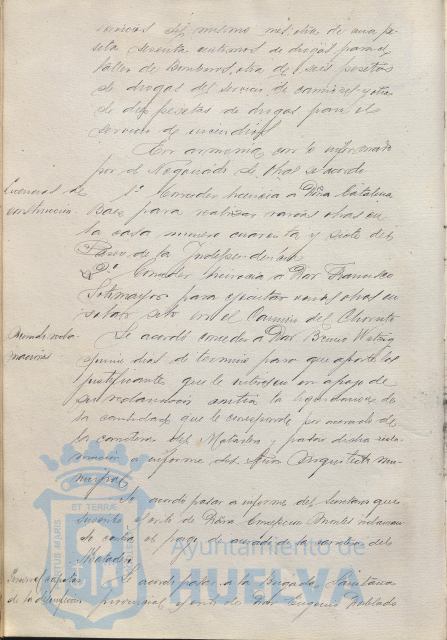 servicios del mismo mes, otra de una pe-
seta sesenta centimos de drogas para el
taller de Bomberos, otra de seis pesetas
de drogas del servicio de caminos y otra
de diez pesetas de drogas para el
servicio de incendios
En armonia con lo informado
por el Negociado de Obras se acordó
Licencias de
construcción
1º Conceder licencia a Dña Catalina
Saez para realizar varias obras en
la casa numero cuarenta y siete del
Paseo de la Independencia
2º Conceder licencia a Don Francisco
Sotomayor para ejecutar varias obras en
solar sito en el Camino del
Se acordó conceder a Don
quince dias de termino para que aporte los
justificantes que le interesen en apoyo de
su reclamación contra la liquidación de
la cantidad que le corresponde por acerado de
la carretera del Matadero y pasar dicha recla-
mación a informe del Sr. Arquitecto mu-
nicipal
Se acordó pasar a informe del Secretario que
suscribe de Doña Concepcion Montes reclaman-
do contra el pago de acerado de la carretera del
Matadero
de la
Se acordó pasar a la Brigada Sanitaria
provincial escrito de Don Eugenio Poblado
ET TERRAE
Ayuntamiento de
HUELVA